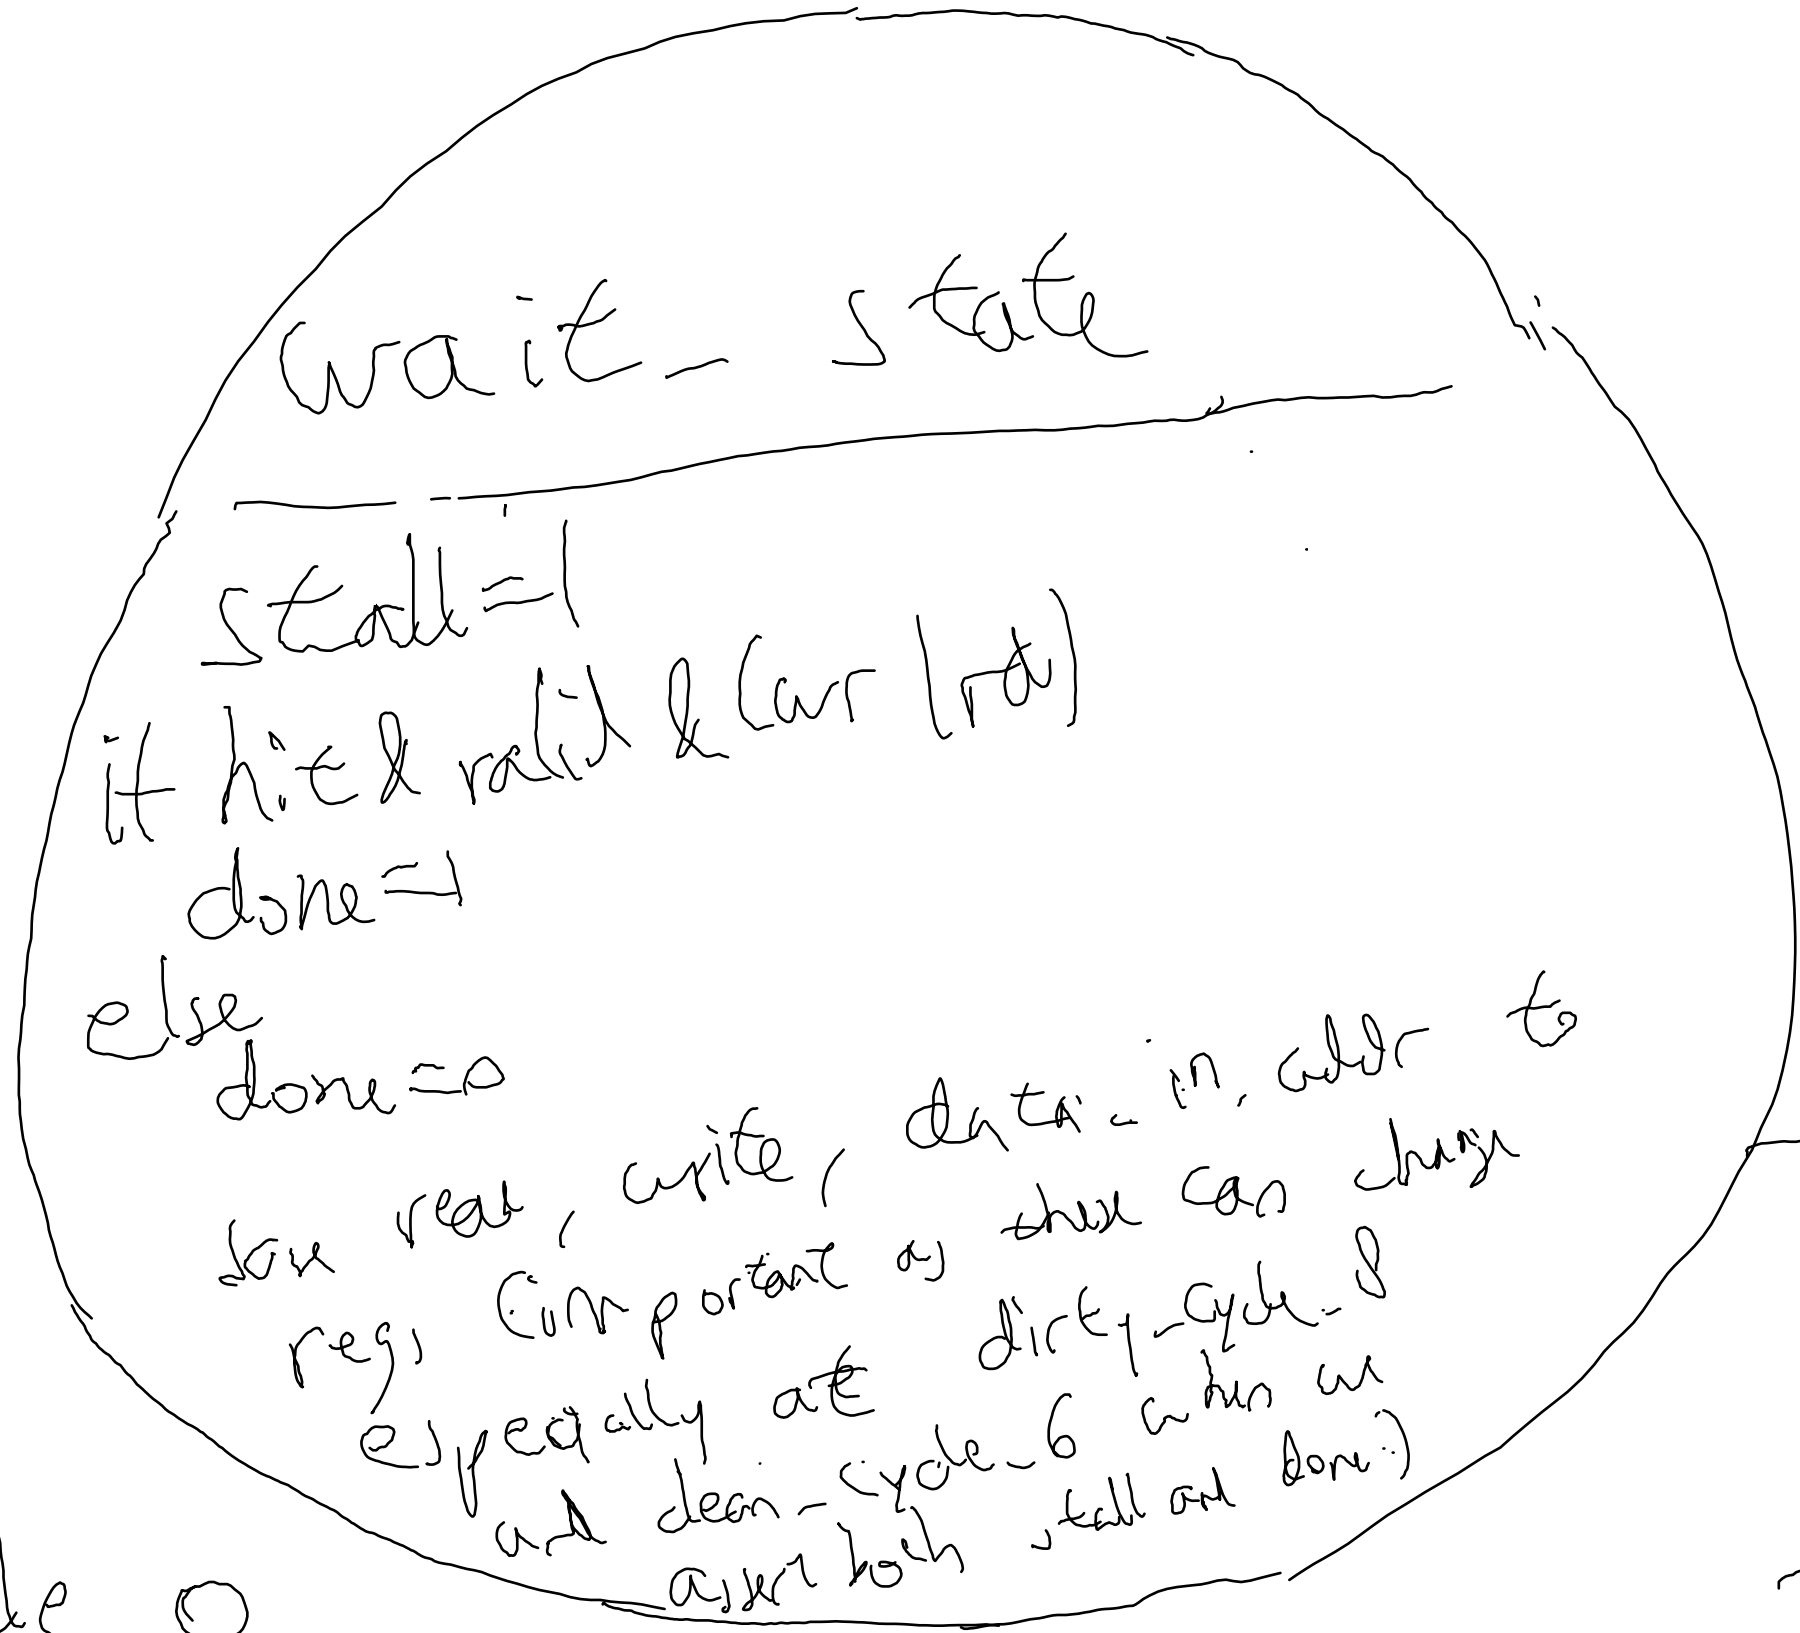 wait_ state
stall=1
if hit & valid & (wr | rd)
done=1
else
done=0
save read, write, data_in, addr to
regs (important as these can change
especially at dirty_cycle_8
and clean_cycle_6 when we
assert both stall and done.)